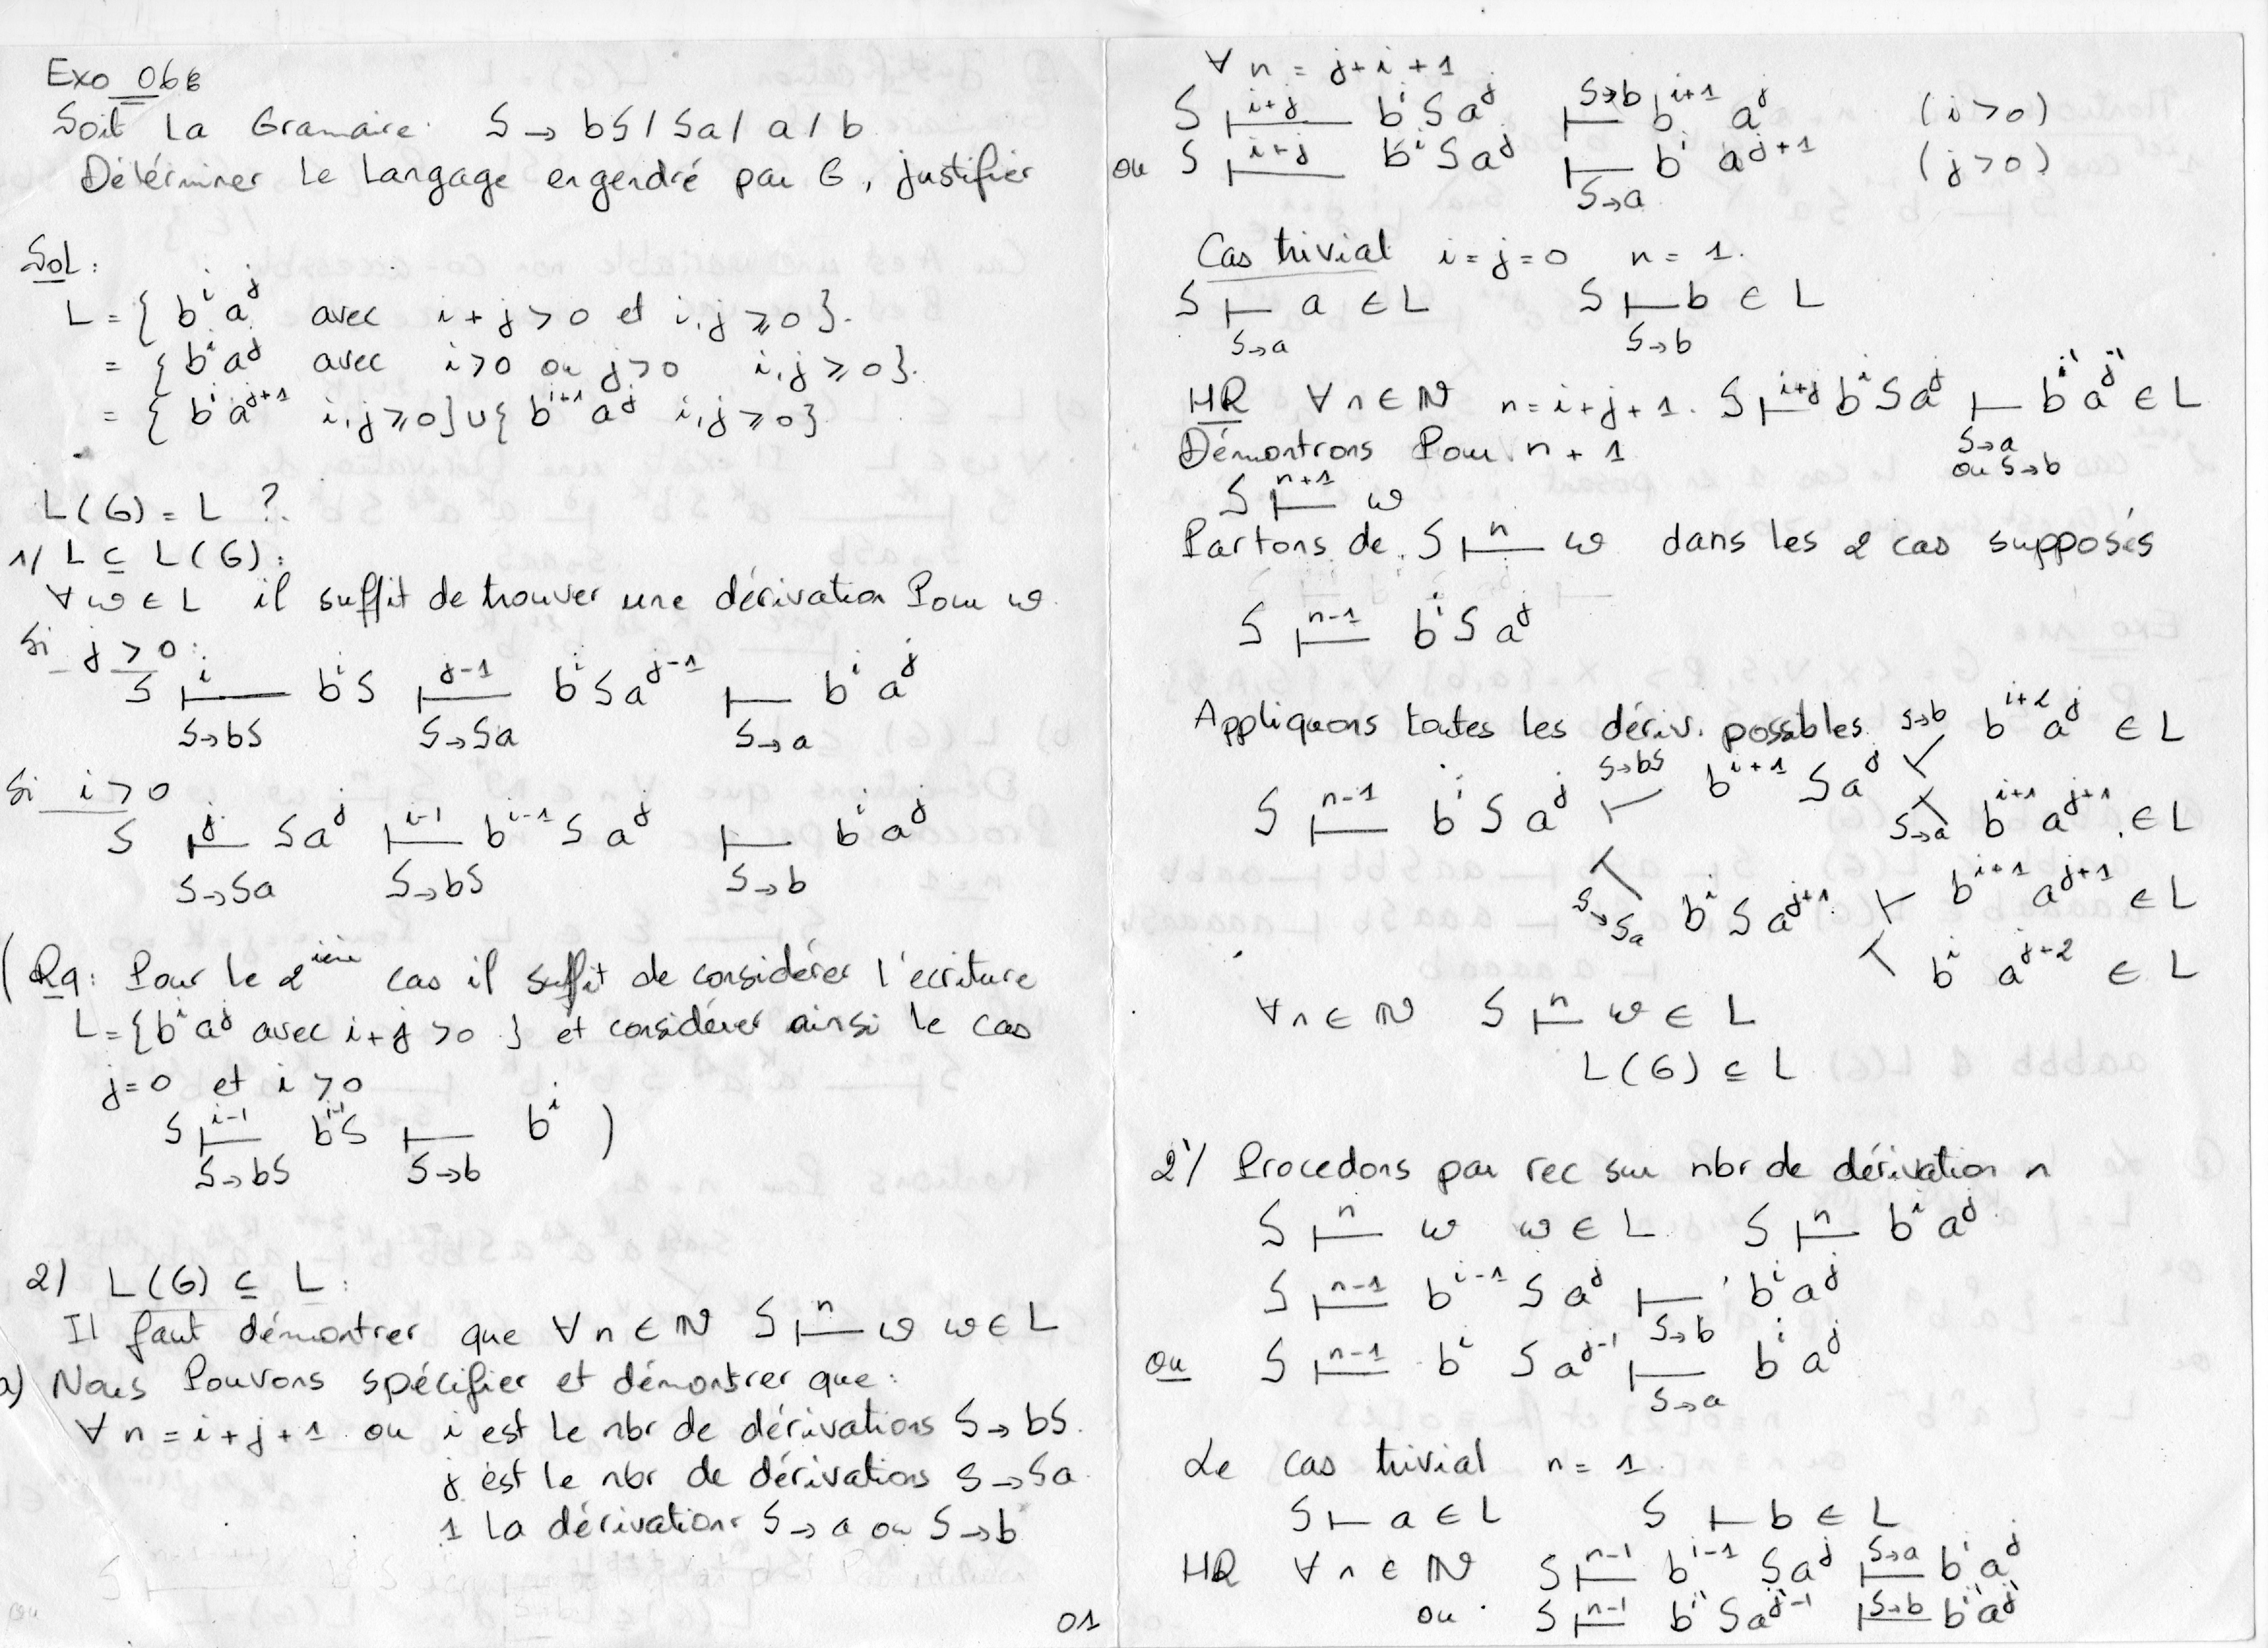 Exo 06
Soit la Gramaire: S → bS / Sa / a / b
Détérminer le langage engendré par G, justifier
Sol:
L = { b^i a^j avec i + j > 0 et i, j ⩾ 0 }.
= { b^i a^j avec i > 0 ou j > 0 i, j ⩾ 0 }.
= { b^i a^{j+1} i, j ⩾ 0 } ∪ { b^{i+1} a^j i, j ⩾ 0 }
L(G) = L ?.
1/ L ⊆ L(G):
∀ ω ∈ L il suffit de trouver une dérivation Pour ω.
Si j > 0:
S ⊢^i b^i S ⊢^{j-1} b^i S a^{j-1} ⊢ b^i a^j
S→bS S→Sa S→a
Si i > 0
S ⊢^j S a^j ⊢^{i-1} b^{i-1} S a^j ⊢ b^i a^j
S→Sa S→bS S→b
( Rq: Pour le 2^ième cas il suffit de considérer l'ecriture
L = { b^i a^j avec i + j > 0 } et considérer ainsi le cas
j = 0 et i > 0
S ⊢^{i-1} b^{i-1} S ⊢ b^i )
S→bS S→b
2) L(G) ⊆ L:
Il faut démontrer que ∀ n ∈ ℕ S ⊢^n ω ω ∈ L
a) Nous Pouvons spécifier et démontrer que:
∀ n = i + j + 1 ou i est le nbr de dérivations S → bS.
j est le nbr de dérivations S → Sa.
1 la dérivation S → a ou S → b
01
∀ n = j + i + 1
S ⊢^{i+j} b^i S a^j ⊢^{S→b} b^{i+1} a^j (i > 0)
ou S ⊢^{i+j} b^i S a^j ⊢ b^i a^{j+1} (j > 0)
S→a
Cas trivial i = j = 0 n = 1.
S ⊢ a ∈ L S ⊢ b ∈ L
S→a S→b
HR ∀ n ∈ ℕ n = i + j + 1. S ⊢^{i+j} b^i S a^j ⊢ b^{i'} a^{j'} ∈ L
S→a
ou S→b
Démontrons Pour n + 1
S ⊢^{n+1} ω
Partons de S ⊢^n ω dans les 2 cas supposés
S ⊢^{n-1} b^i S a^j
Appliquons toutes les dériv. possibles S→b b^{i+2} a^j ∈ L
S ⊢^{n-1} b^i S a^j ⊢ S→bS b^{i+1} S a^j ⊢
S→a b^{i+1} a^{j+1} ∈ L
⊢ S→Sa b^i S a^{j+1} ⊢ b^{i+1} a^{j+1} ∈ L
⊢ b^i a^{j+2} ∈ L
∀ n ∈ ℕ S ⊢^n ω ∈ L
L(G) ⊆ L
2'/ Procedons par rec sur nbr de dérivation n
S ⊢^n ω ω ∈ L S ⊢^n b^i a^j
S ⊢^{n-1} b^{i-1} S a^j ⊢ b^i a^j
S→b
ou S ⊢^{n-1} b^i S a^{j-1} ⊢ b^i a^j
S→a
Le cas trivial n = 1.
S ⊢ a ∈ L S ⊢ b ∈ L
HR ∀ n ∈ ℕ S ⊢^{n-1} b^{i-1} S a^j ⊢^{S→a} b^i a^j
ou S ⊢^{n-1} b^{i'} S a^{j'-1} ⊢^{S→b} b^{i'} a^{j'}